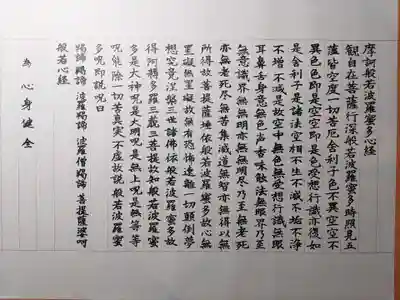 摩訶般若波羅蜜多心経
観自在菩薩行深般若波羅蜜多時照見五
蘊皆空度一切苦厄舎利子色不異空空不
異色色即是空空即是色受想行識亦復如
是舎利子是諸法空相不生不滅不垢不浄
不増不減是故空中無色無受想行識無眼
耳鼻舌身意無色声香味触法無眼界乃至
無意識界無無明亦無無明尽乃至無老死
亦無老死尽無苦集滅道無智亦無得以無
所得故菩提薩埵依般若波羅蜜多故心無
罣礙無罣礙故無有恐怖遠離一切顛倒夢
想究竟涅槃三世諸佛依般若波羅蜜多故
得阿耨多羅三藐三菩提故知般若波羅蜜
多是大神呪是大明呪是無上呪是無等等
呪能除一切苦真実不虚故説般若波羅蜜
多呪即説呪曰
羯諦羯諦 波羅羯諦 波羅僧羯諦 菩提薩婆訶
般若心経
為 心身健全